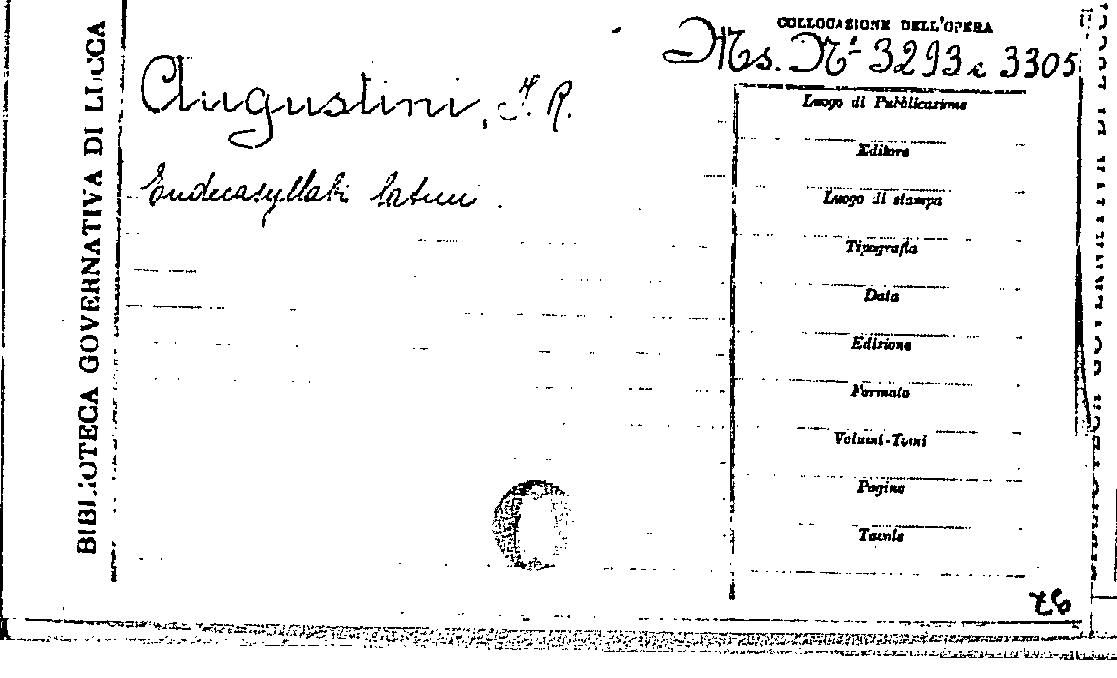 BIBLIOTECA GOVERNATIVA DI LUCCA
COLLOCAZIONE DELL'OPERA
Ms. Nº 3293 e 3305
Augustini, F. R.
Endecasyllabi latini.
Luogo di Pubblicazione
Editore
Luogo di stampa
Tipografia
Data
Edizione
Formato
Volumi-Tomi
Pagine
Tavole